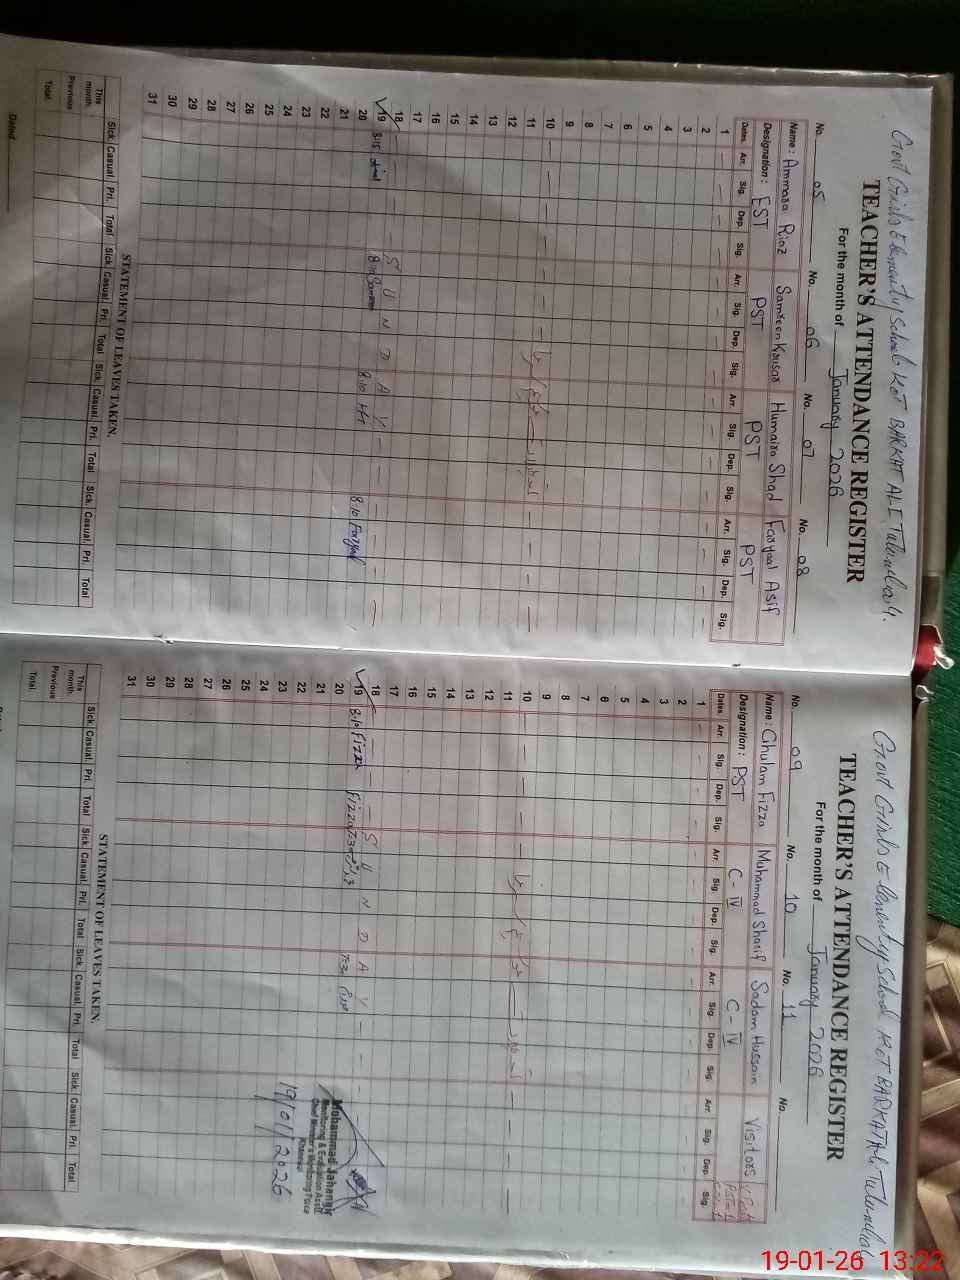 Govt Girls Elementary School KOT BARKAT ALI
TEACHER'S ATTENDANCE REGISTER
For the month of January 2026
No. 05 No. 06 No. 07 No. 08
Name: Ammara Riaz Samreen Kausar Humaira Shad Faryaal Asif
Designation: EST PST PST PST
Dates Arr. Sig. Dep. Sig. Arr. Sig. Dep. Sig. Arr. Sig. Dep. Sig. Arr. Sig. Dep. Sig.
1
2
3
4
5
6
7
8
9
10
11
12
13
14
15
16
17
18 S U N D A Y
19 8:15 8:10 Samreen 8:10 8:10 Faryaal
20
21
22
23
24
25
26
27
28
29
30
31
STATEMENT OF LEAVES TAKEN.
Sick. Casual. Pri. Total Sick. Casual. Pri. Total Sick. Casual. Pri. Total Sick. Casual. Pri. Total
This month.
Previous
Total
Dated
Govt Girls Elementary School KOT BARKAT ALI
TEACHER'S ATTENDANCE REGISTER
For the month of January 2026
No. 09 No. 10 No. 11 No.
Name: Ghulam Fizza Muhammad Sharif Sadam Hussain Visitors
Designation: PST C-IV C-IV
Dates Arr. Sig. Dep. Sig. Arr. Sig. Dep. Sig. Arr. Sig. Dep. Sig. Arr. Sig. Dep. Sig.
1
2
3
4
5
6
7
8
9
10
11
12
13
14
15
16
17
18 S U N D A Y
19 8:10 Fizza Fizza 7:30 7:30
20
21
22
23
24
25
26
27
28
29
30
31
Mohammad Jahangir
Monitoring & Evaluation Asstt.
Chief Minister's Monitoring Force
Khanewal
19/01/2026
STATEMENT OF LEAVES TAKEN.
Sick. Casual. Pri. Total Sick. Casual. Pri. Total Sick. Casual. Pri. Total Sick. Casual. Pri. Total
This month.
Previous
Total
19-01-26 13:22